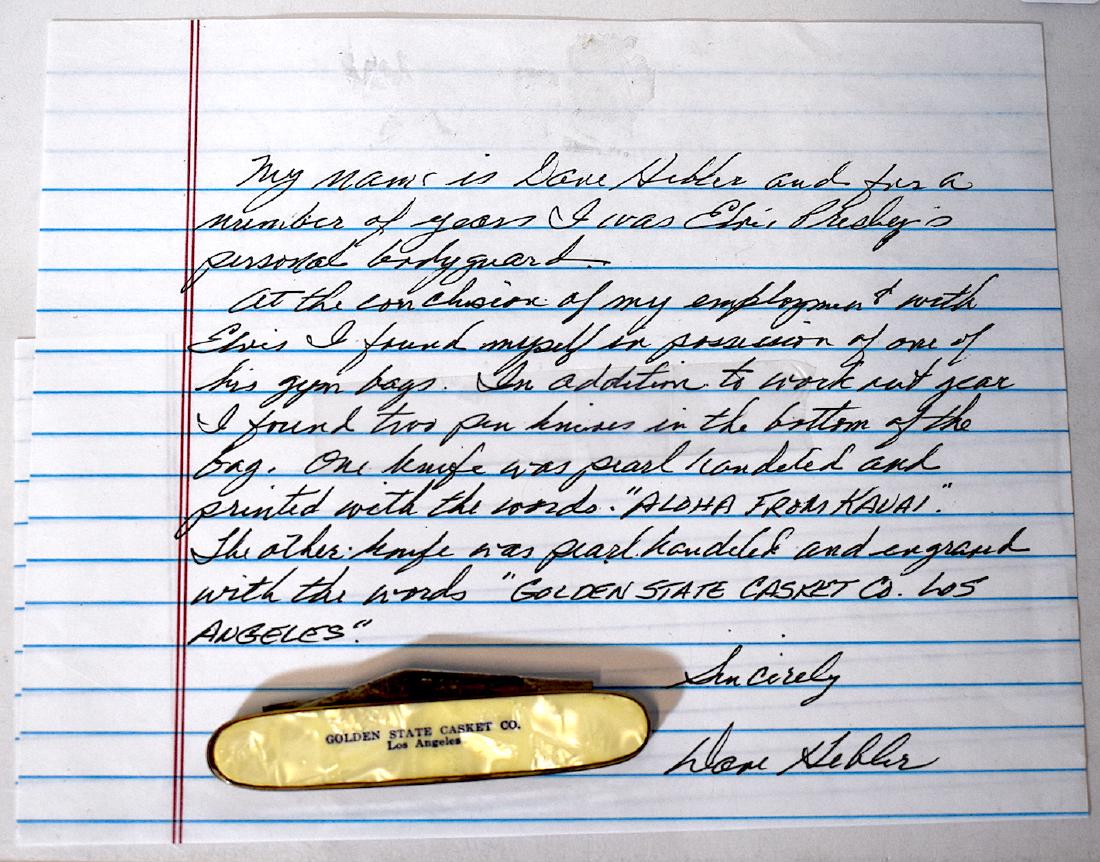 My name is Dave Hebler and for a
number of years I was Elvis Presley's
personal bodyguard.
At the conclusion of my employment with
Elvis I found myself in possession of one of
his gym bags. In addition to work out gear
I found two pen knives in the bottom of the
bag. One knife was pearl handeled and
printed with the words "ALOHA FROM KAUAI".
The other knife was pearl handeled and engraved
with the words "GOLDEN STATE CASKET CO. LOS
ANGELES".
Sincirely
Dave Hebler
GOLDEN STATE CASKET CO.
Los Angeles